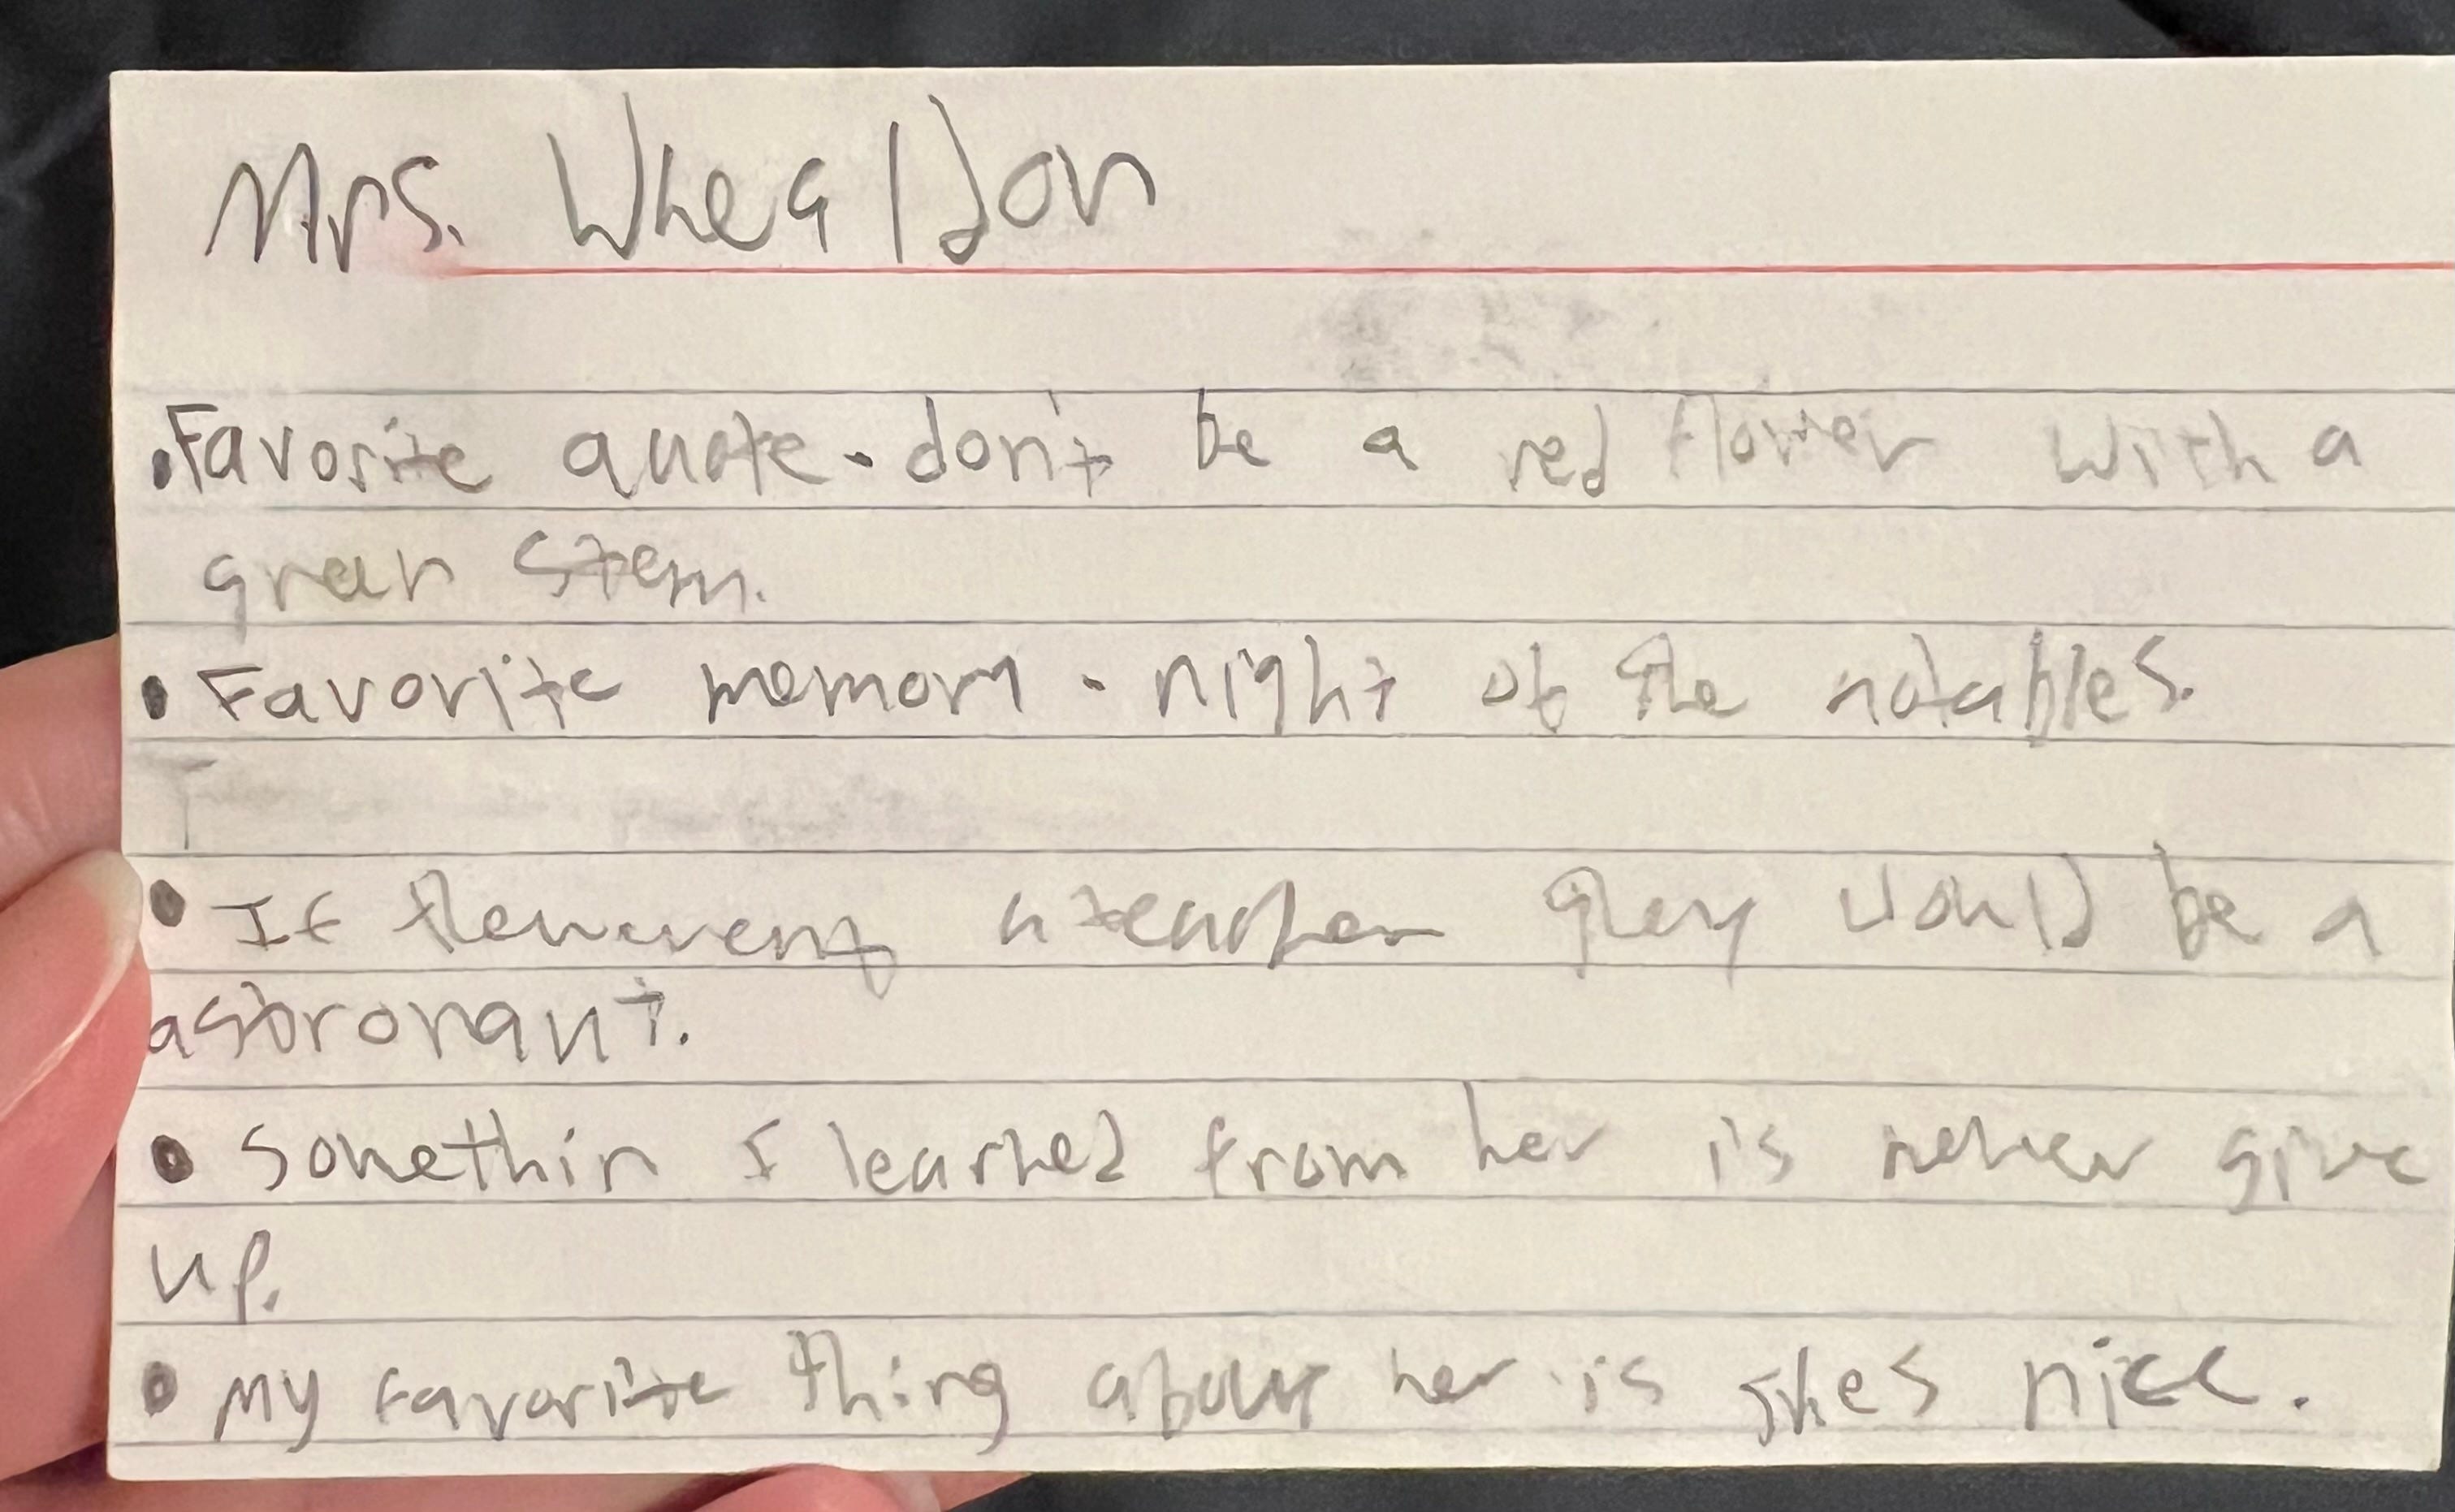 Mrs. Whealdon
•Favorite quote - don't be a red flower with a
green stem.
• Favorite memory - night of the notables.
• If the weren't a teacher they would be a
astronaut.
• Somethin I learned from her is never give
up.
• My favorite thing about her is shes nice.